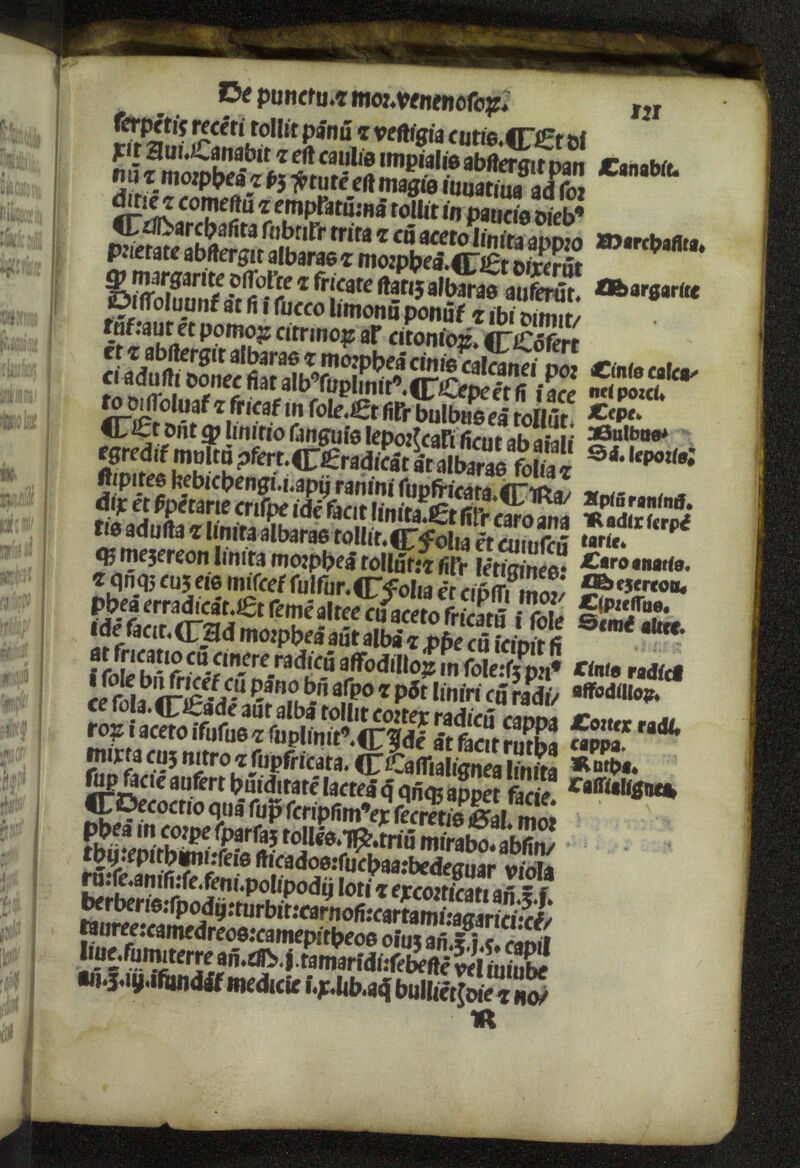 De punctu.⁊ mor.venenosoꝝ. 121
serpētis recēti tollit pānū ⁊ vestigia cutis.¶Et di
xit Aui.Canabit ⁊ est caulis impialis abstergit pan
nū ⁊ morpheā ⁊ hꝫ ꝟtutē est magis iuuatiua ad for
ditiē ⁊ comestū ⁊ emplatū:nā tollit in paucis dieb⁹
¶Marchasita subtilr trita ⁊ cū aceto linita appro
prietate abstergit albaras ⁊ morpheā.¶Et dixerūt
ꝙ margarite dissolte ⁊ fricate statiꝫ albaras auferūt.
Dissoluunt̄ āt si i succo limonū ponūt̄ ⁊ ibi dimit/
tūt̄:aut ēt pomoꝝ citrinoꝝ al̄ citonioꝝ.¶Cōfert
ēt ⁊ abstergit albaras ⁊ morpheā cinis calcanei por
ci adusti donec fiat alb⁹suplinit⁹.¶Cepe ēt si i ace
to dissoluat̄ ⁊ fricat̄ in sole.Et silr bulbus eā tollūt.
¶Et dn̄t ꝙ linitio sanguis leporꝭcali sicut ab aīali
egredit̄ multū ꝓfert.¶Eradicāt āt albaras folia ⁊
stipites kebichengi.i.apij ranini supfricata.¶Ra/
dix ēt ẜpētarie crispe idē facit linita.Et silr caro ana
tis adusta ⁊ linita albaras tollit.¶Folia ēt cuiuscū
qꝫ mezereon linita morpheā tollūt:⁊ silr lētigines:
⁊ qn̄qꝫ cuꝫ eis miscet̄ sulfur.¶Folia ēt cip̄ssi mor/
pheā erradicāt.Et semē altee cū aceto fricatū i sole
idē facit.¶Ad morpheā aūt albā ⁊ ꝓp̄e cū icipit fi
at fricatio cū cinere radicū affodilloꝝ in sole:sꝫ pri⁹
i sole bn̄ fricet̄ cū pāno bn̄ aspo ⁊ pōt liniri cū radi/
ce sola.¶Eādē aūt albā tollit cortex radicū cappa
roꝝ i aceto ifusus ⁊ suplinit⁹.¶Idē āt facit rutha
mixta cuꝫ nitro ⁊ supfricata.¶Cassialignea linita
sup faciē aufert hūiditatē lacteā q̄ qn̄qꝫ appet facie.
¶Decoctio quā sup̄ scripsim⁹ex secretis Gal. mor
pheā in corpe sparsaꝫ tolles.℞.triū mirabo.absin/
thij:epithimi:seis sticados:suchaa:bedeguar viola
rū:se.anisi:se.feni.polipodij loti ⁊ excorticati an̄.ʒ.j.
berberis:spodij:turbit:carnosi:cartami:agarici:cē/
tauree:camedreos:camepitheos oīuꝫ an̄.ʒ.j.s. capil
liue.fumiterre an̄.M.j.tamaridi:sebestē vel iuiube
an̄.ʒ.iij.ifundāt̄ medicie i.x.lib.aq̄ bulliētꝭdie ⁊ no/
R
Canabit.
Marchasita.
Margarite
Cinis calca-
nei porci.
Cepe.
Bulbus.
Sā.leporis.
Apiū raninū.
Radix serpē
tarie.
Caro anatis.
Mezereon.
Cipressus.
Semē altee.
Cinis radicū
affodilloꝝ.
Cortex radi.
cappa.
Rutha.
Cassialignea